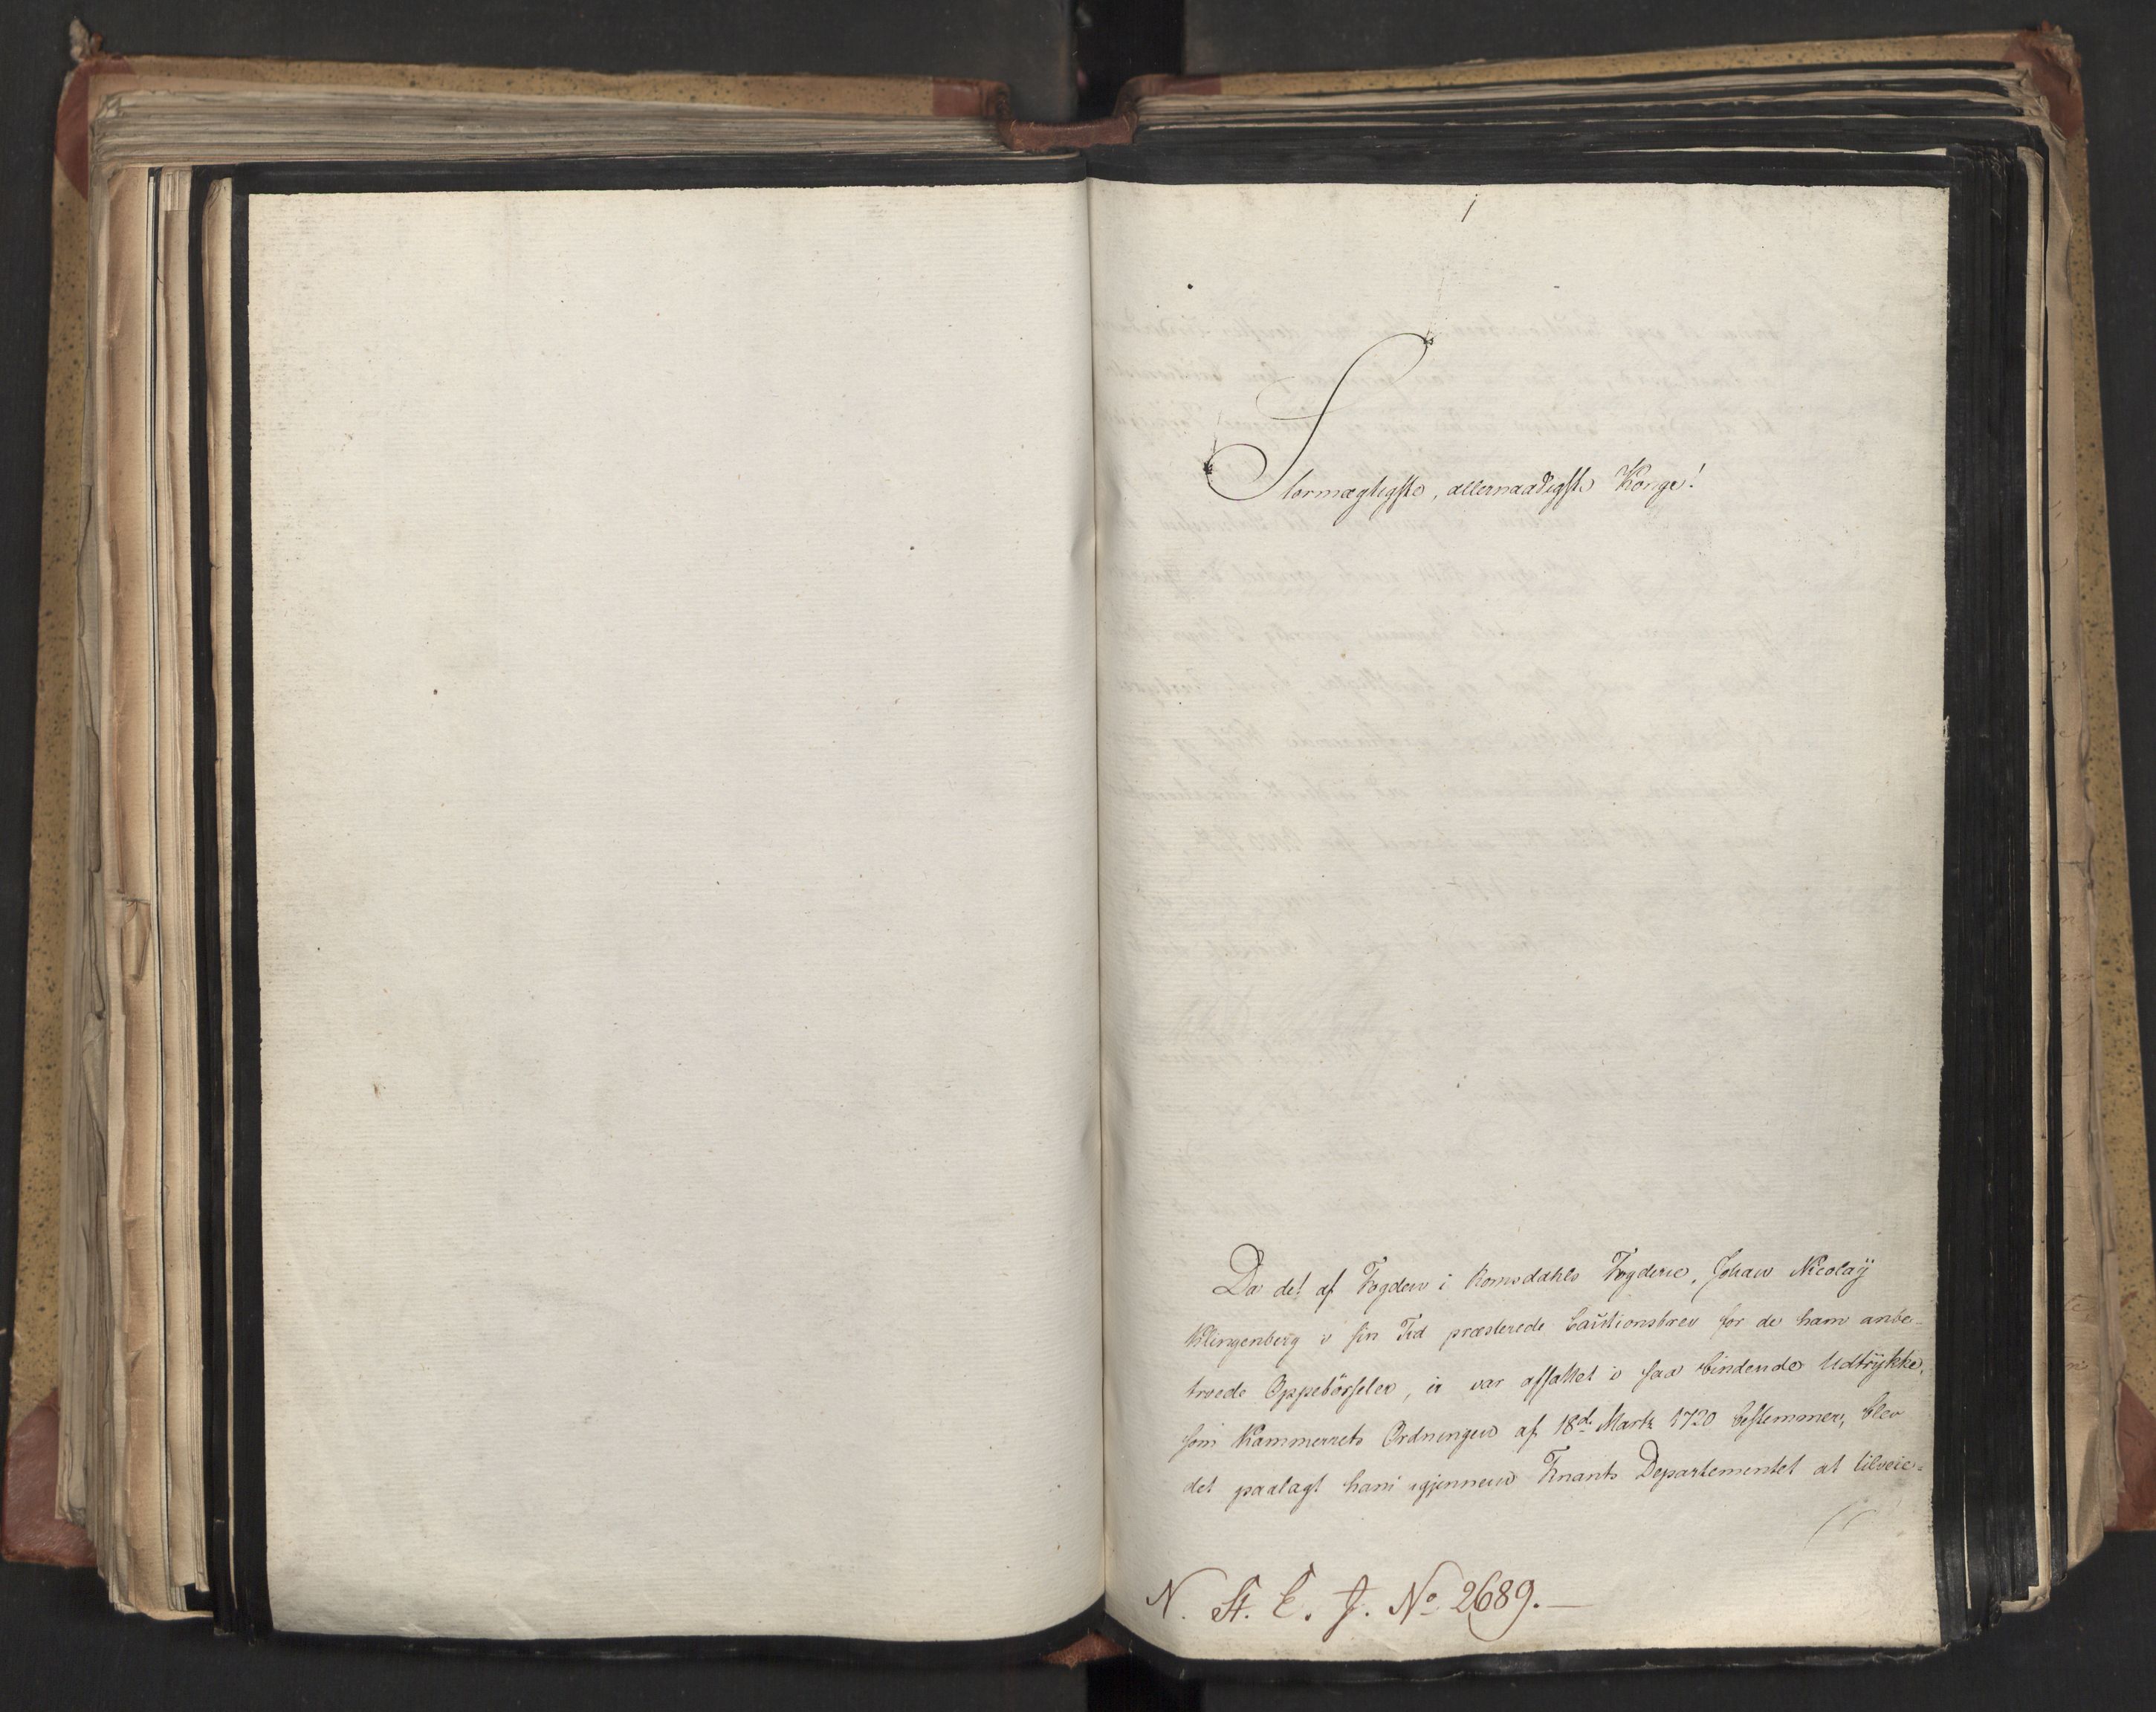 1
Stormægtigste, allernaadigste Konge!
Da det af Fogden i Romsdahls Fogderie, Johan Nicolaÿ
Klingenberg i sin Tid præsterede Cautionsbrev for de ham anbe-
troede Oppebörseler, ei var affattet i saa bindende Udtrÿkke,
som Kammerrets Ordningen af 18d. Martz 1720 bestemmer, blev
det paalagt ham igjennem Finants Departementet at tilveie-
N. St. C. J. No 2689.—